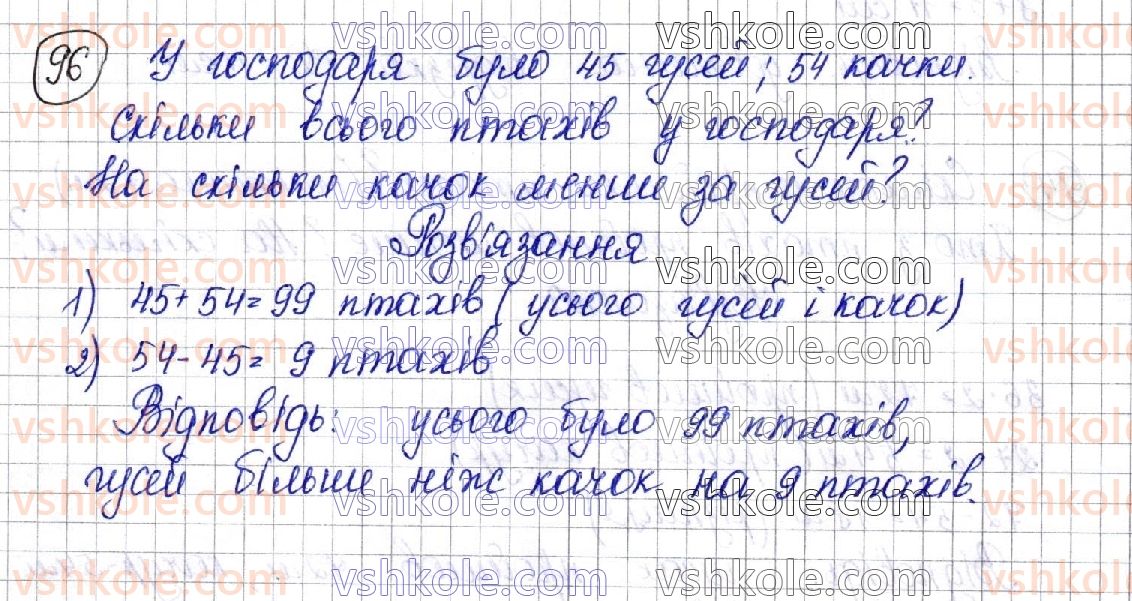 96 У господаря було 45 гусей; 54 качки.
Скільки всього птахів у господаря?
На скільки качок менше за гусей?
Розв'язання
1) 45+54=99 птахів (усього гусей і качок)
2) 54-45= 9 птахів
Відповідь: усього було 99 птахів,
гусей більше ніж качок на 9 птахів.
vshkole.com